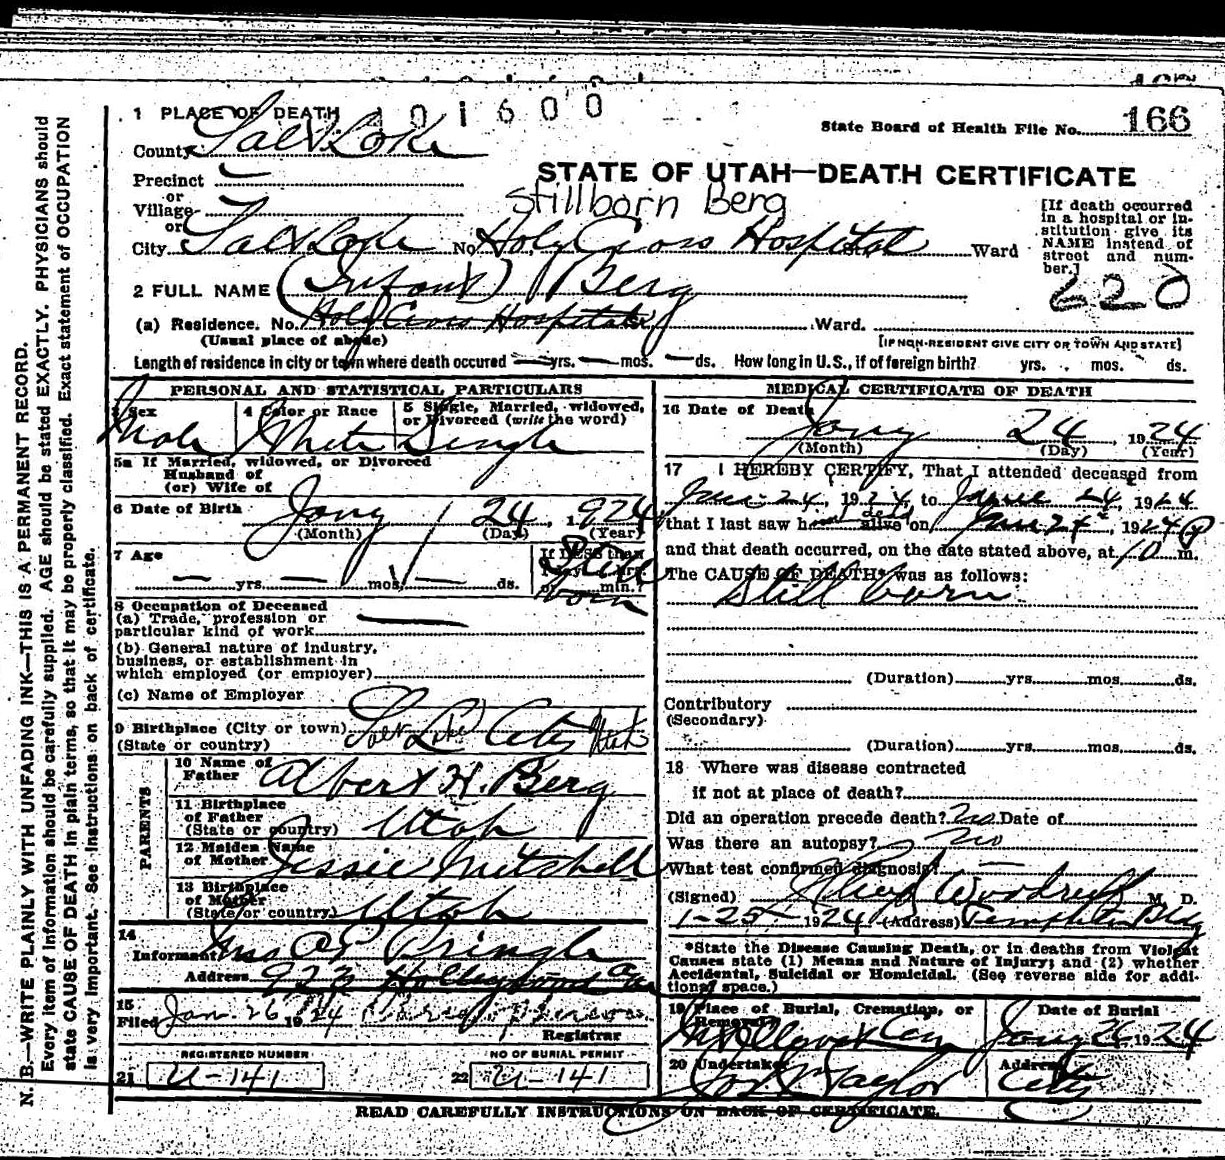 N. B.—WRITE PLAINLY WITH UNFADING INK—THIS IS A PERMANENT RECORD.
Every item of information should be carefully supplied. AGE should be stated EXACTLY. PHYSICIANS should
state CAUSE OF DEATH in plain terms, so that it may be properly classified. Exact statement of OCCUPATION
is very important. See instructions on back of certificate.
1 PLACE OF DEATH 101600
State Board of Health File No. 166
County Salt Lake
STATE OF UTAH—DEATH CERTIFICATE
Precinct
or
Village
or
stillborn Berg
City Salt Lake No. Holy Cross Hospital St. Ward
[If death occurred
in a hospital or in-
stitution give its
NAME instead of
street and num-
ber.]
620
2 FULL NAME (Infant) Berg
(a) Residence. No. Holy Cross Hospital St. Ward.
(Usual place of abode)
[IF NON-RESIDENT GIVE CITY OR TOWN AND STATE]
Length of residence in city or town where death occured — yrs. — mos. — ds. How long in U.S., if of foreign birth? yrs. mos. ds.
PERSONAL AND STATISTICAL PARTICULARS
3 Sex
Male
4 Color or Race
White
5 Single, Married, widowed,
or Divorced (write the word)
Single
5a If Married, widowed, or Divorced
Husband of
(or) Wife of
6 Date of Birth Jany 24, 1924
(Month) (Day) (Year)
7 Age
— yrs. — mos. — ds.
If LESS than
min.
Still
born
8 Occupation of Deceased
(a) Trade, profession or
particular kind of work
(b) General nature of industry,
business, or establishment in
which employed (or employer)
(c) Name of Employer
9 Birthplace (City or town) Salt Lake City Utah
(State or country)
PARENTS
10 Name of
Father Albert H. Berg
11 Birthplace
of Father
(State or country) Utah
12 Maiden Name
of Mother Jessie Mitchell
13 Birthplace
of Mother
(State or country) Utah
14
Informant Mrs Pringle
Address 923 Hollywood Ave
15
Filed Jan. 26 1924
Registrar
REGISTERED NUMBER
21 U-141
NO OF BURIAL PERMIT
22 U-141
MEDICAL CERTIFICATE OF DEATH
16 Date of Death Jany 24, 1924
(Month) (Day) (Year)
17 I HEREBY CERTIFY, That I attended deceased from
Jan. 24, 1924, to 24, 1924
that I last saw h dead alive on Jan 24, 1924
and that death occurred, on the date stated above, at 10 P m.
The CAUSE OF DEATH* was as follows:
Still born
(Duration) yrs. mos. ds.
Contributory
(Secondary)
(Duration) yrs. mos. ds.
18 Where was disease contracted
if not at place of death?
Did an operation precede death? no Date of
Was there an autopsy? no
What test confirmed diagnosis? —
(Signed) Woodruff M. D.
1-25 1924 (Address) Templeton Bldg
*State the Disease Causing Death, or in deaths from Violent
Causes state (1) Means and Nature of Injury; and (2) whether
Accidental, Suicidal or Homicidal. (See reverse side for addi-
tional space.)
19 Place of Burial, Cremation, or
Removal
Mt Olivet Cem
Date of Burial
Jany 26 1924
20 Undertaker
Taylor
Address
City
READ CAREFULLY INSTRUCTIONS ON BACK OF CERTIFICATE.